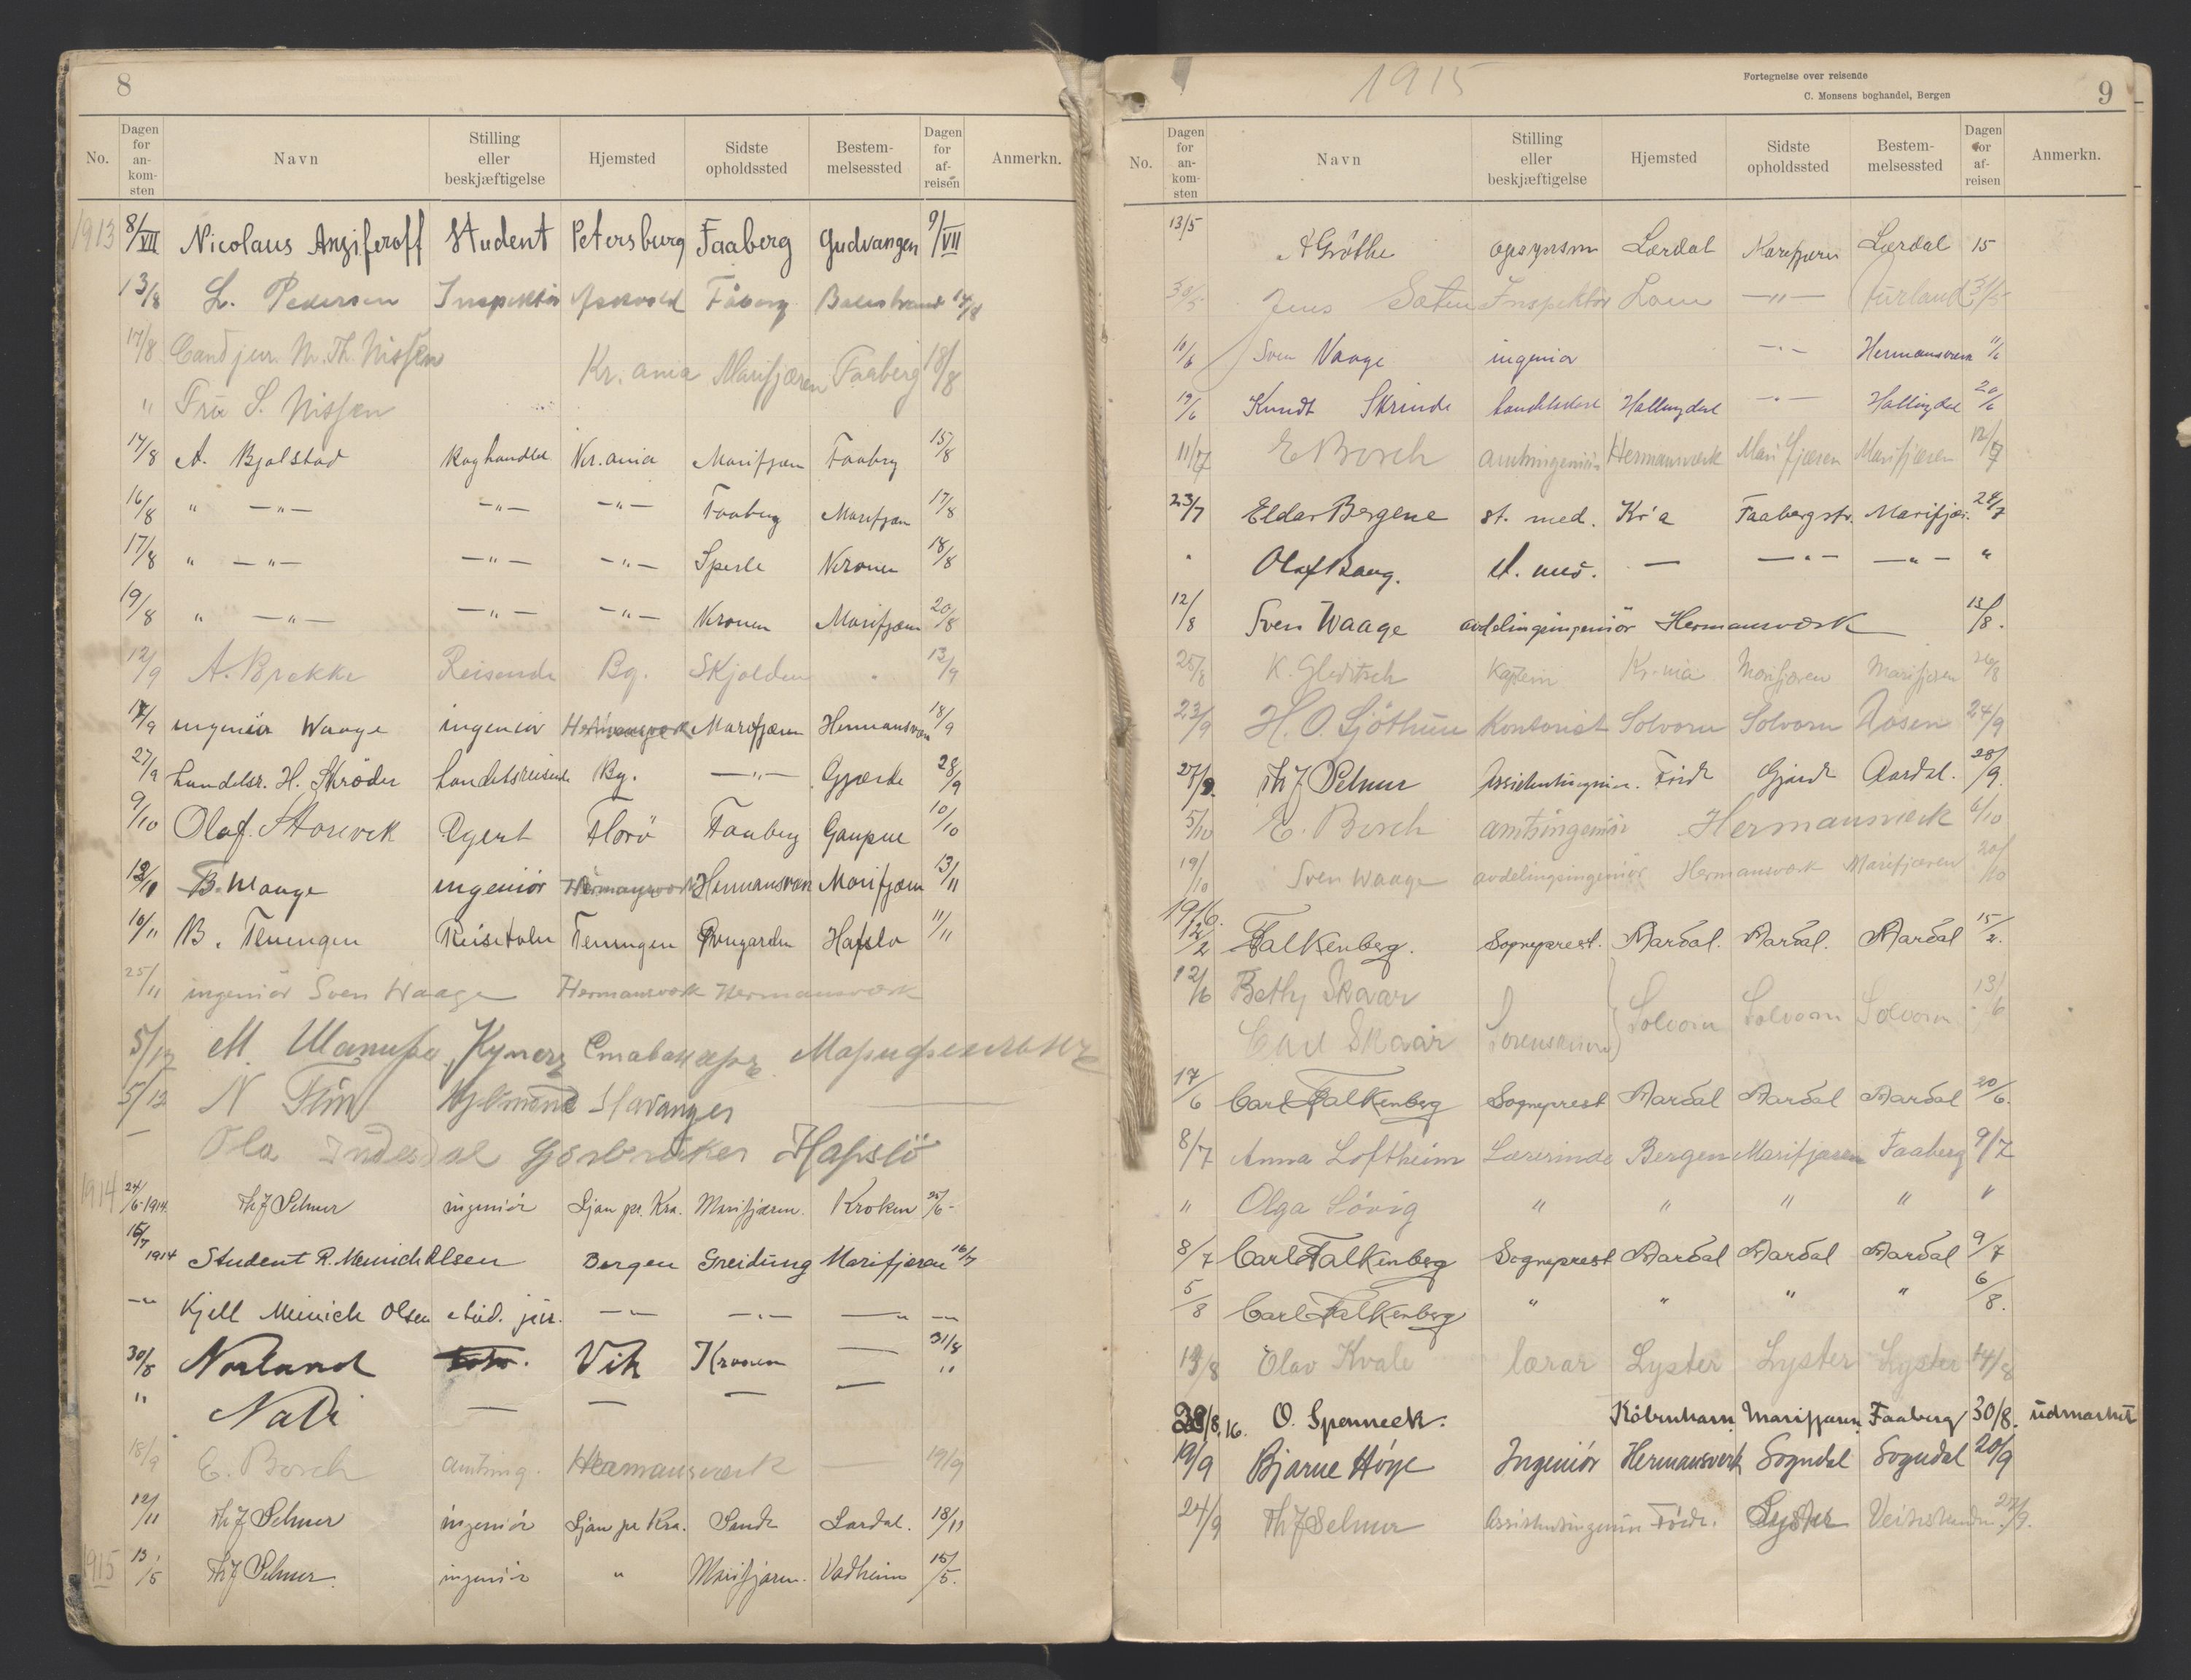 8
No.
Dagen for an- kom- sten
Navn
Stilling eller beskjæftigelse
Hjemsted
Sidste opholdssted
Bestem- melsessted
Dagen for af- reisen
Anmerkn.
1913 8/VII Nicolaus Anziferoff Student Petersburg Faaberg Gudvangen 9/VII
13/8 L. Pedersen Inspektör Fåberg Balestrand 14/8
17/8 Cand jur. N. Th. Nissen Kr.ania Marifjæren Faaberg 18/8
" Fru S. Nissen
A. Bjølstad Kr.ania Marifjæren Faaberg 15/8
16/8 " —"— —"— —"— Faaberg Marifjæren 17/8
17/8 " —"— —"— —"— Sperle Kronen 18/8
19/8 " —"— —"— —"— Kronen Marifjæren 20/8
12/9 A. Brekke Reisende Bg. Skjolden 13/9
17/9 ingeniør Waage ingeniør Hermansverk Marifjæren Hermansverk 18/9
27/9 handelsr. H. Skrøder handelsreisende Bg. —"— Gjærde 28/9
9/10 Olaf Agent Florö Faaberg Gaupne 10/10
B. Waage ingeniør Hermansverk Marifjæren 13/11
10/11 B. Teningen Hafslo 11/11
25/11 ingeniør Sven Waage Hermansverk Hermansverk
5/12 М. Шапиро Купец Ставангер
5/12 N Stavanger
— Ola Gårbruker Hafslö
1914 24/6-1914. Th J Selmer ingeniør Ljan pr. Kra. Marifjæren. Kroken 25/6-
15/7 1914 Student R. Meinich Olsen Bergen Greidung Marifjæren 16/7
—"— Kjell Meinich Olsen stud. jur. —"— —"— —"— —"—
30/8 Norland Vik Kronen — 31/8
" Nadi — — — — "
18/9 E. Bosch amtsing. Hermansverk — 19/9
12/11 Th J Selmer ingeniør Ljan pr Kra. Sande Lærdal. 18/11
1915 13/5 Th J Selmer. ingeniør " Marifjæren. Vadheim 15/5.
1915
Fortegnelse over reisende
C. Monsens boghandel, Bergen
9
No.
Dagen for an- kom- sten
Navn
Stilling eller beskjæftigelse
Hjemsted
Sidste opholdssted
Bestem- melsessted
Dagen for af- reisen
Anmerkn.
13/5 A Grøthe opsynsm Lærdal Marifjæren Lærdal 15
30/5 Jens Inspektör Lom —"— 31/5
10/6 Sven Vaage ingeniør —"— Hermansverk 11/6
19/6 Knudt Skrinde Hallingdal —"— Hallingdal 20/6
11/7 E Bosch amtsingeniør Hermansverk Marifjæren Marifjæren 12/7
23/7 Eldar Bergene st. med. Kr'a Faabergstr. Marifjær. 24/7
" Olaf Bang. st. med. — —"— —"— "
12/8 Sven Waage avdelingsingeniör Hermansverk 13/8.
25/8 K. Gleditsch Kaptein Kr.nia Marifjæren Marifjæren 26/8
23/9 H. O. Sjöthun Kontorist Solvorn Solvorn Aasen 24/9
27/9. Th J Selmer Assistentingeniør. Førde Gjærde Aardal. 28/9.
5/10 E. Bosch amtsingeniør Hermansverk 6/10
19/10 Sven Waage avdelingsingeniör Hermansverk Marifjæren 20/10
1916.
12/2 Falkenberg. Sogneprest. Aardal. Aardal. Aardal 15/2.
12/6 Betty Skaar
Carl Skaar Solvorn Solvorn Solvorn 13/6
17/6 Carl Falkenberg Sogneprest Aardal Aardal Aardal 20/6.
8/7 Anna Loftheim Lærerinde Bergen Marifjæren Faaberg 9/7
" Olga Sövig " " " " "
8/7 Carl Falkenberg Sogneprest Aardal Aardal Aardal 9/7
5/8 Carl Falkenberg " " " " 6/8.
13/8 Olav Kvale lærar Lyster Lyster Lyster 14/8
/8.16. O. Spenneck. Köbenhavn Marifjæren Faaberg 30/8. udmærket
19/9 Bjarne Høye Ingeniör Hermansverk Sogndal Sogndal 20/9
24/9 Th J Selmer Assistentingeniør Førde. Lyster